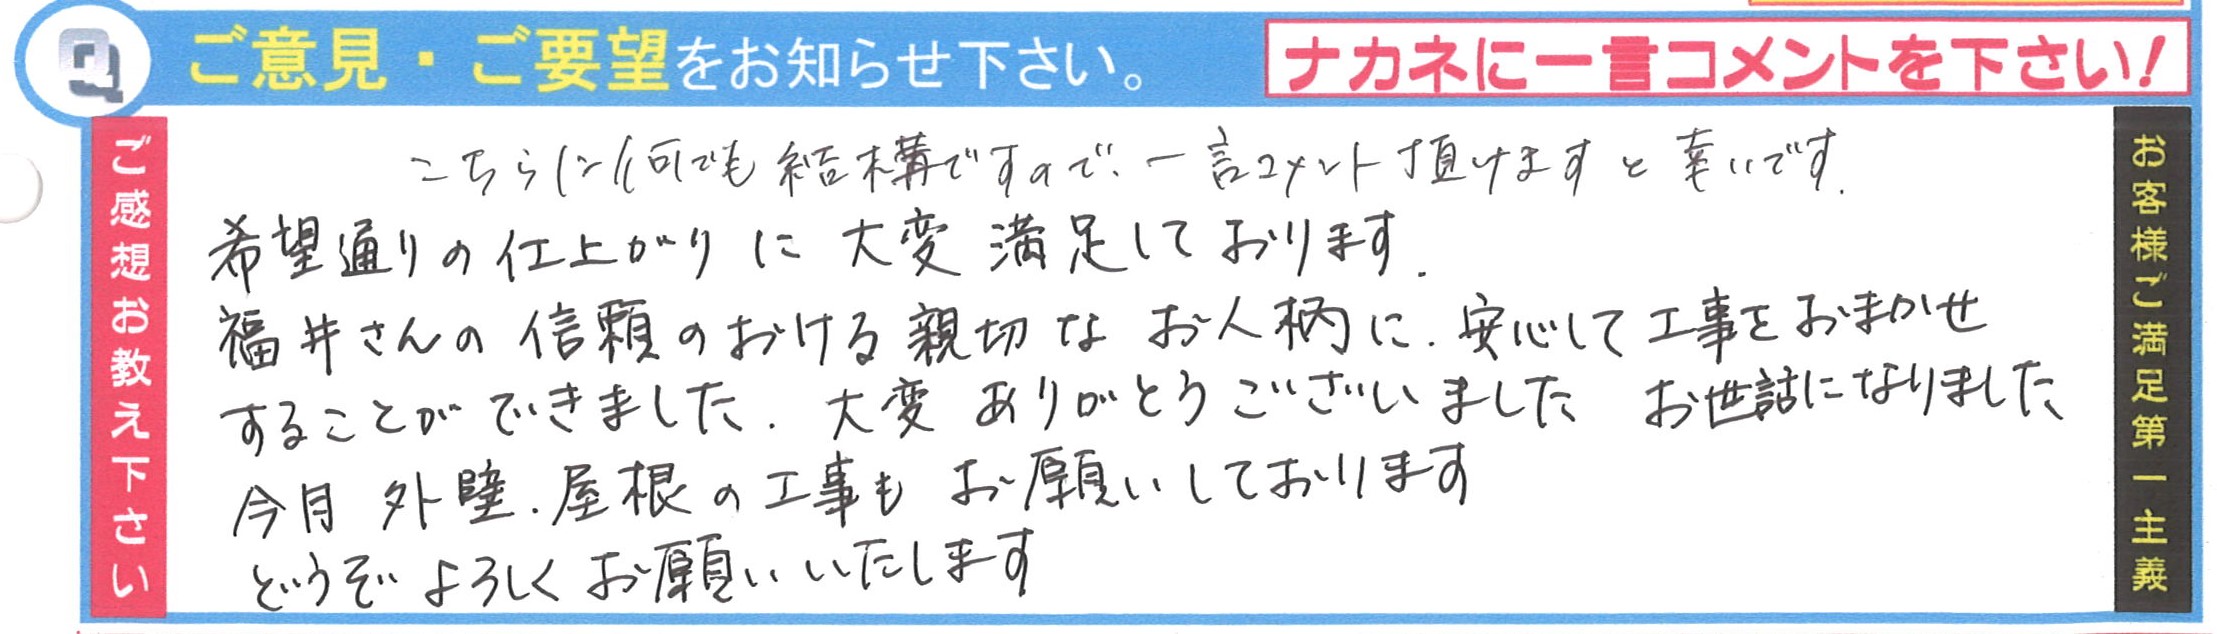 Q ご意見・ご要望をお知らせ下さい。
ナカネに一言コメントを下さい!
ご感想お教え下さい
こちらに何でも結構ですので、一言コメント頂けますと幸いです.
希望通りの仕上がりに大変満足しております.
福井さんの信頼のおける親切なお人柄に.安心して工事をおまかせ
することができました.大変ありがとうございました お世話になりました
今月 外壁.屋根の工事もお願いしております
どうぞよろしくお願いいたします
お客様ご満足第一主義